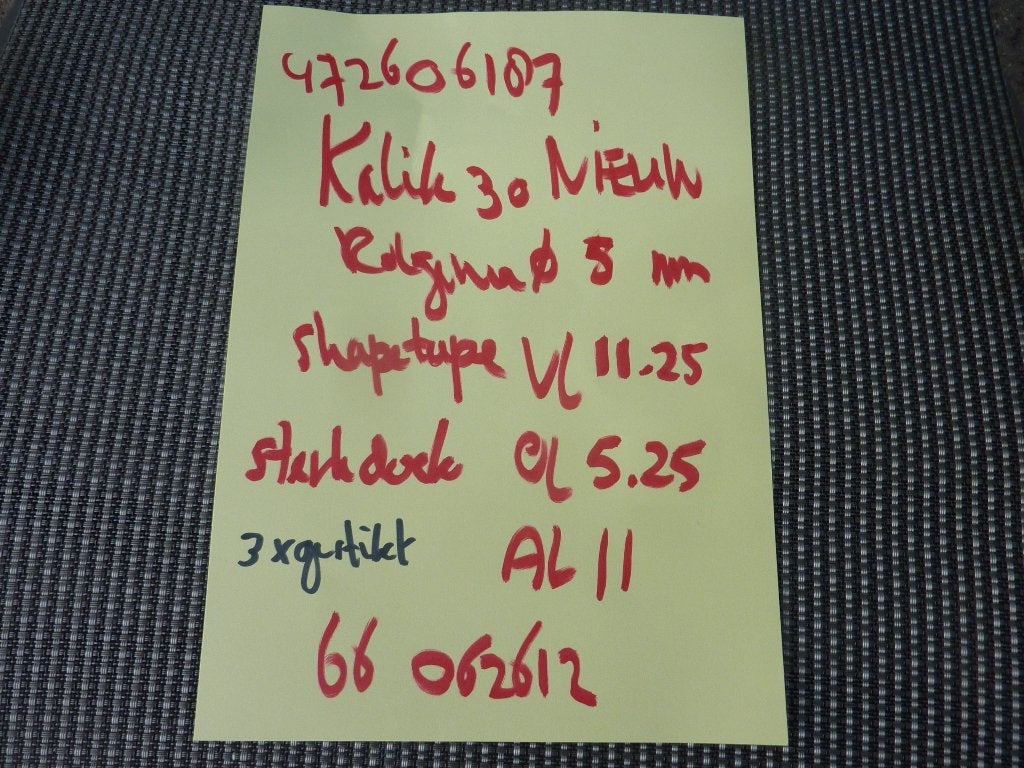 472606187
Kalik 30 NiEUW
Ø 5 mm
shapetape VL 11.25
sterk doek OL 5.25
3x gestikt AL 11
66 062612